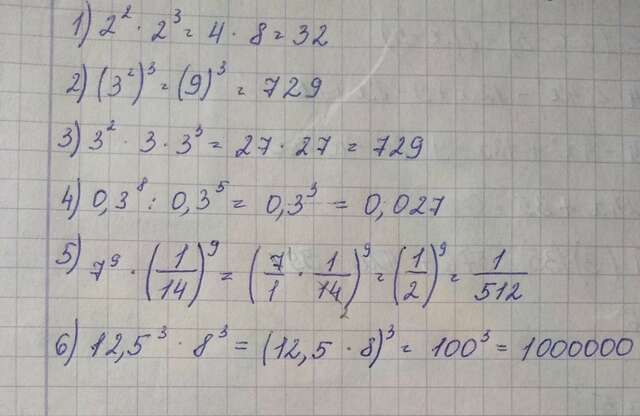 1) 2² · 2³ = 4 · 8 = 32
2) (3²)³ = (9)³ = 729
3) 3² · 3 · 3³ = 27 · 27 = 729
4) 0,3⁸ : 0,3⁵ = 0,3³ = 0,027
5) 7⁹ · (1/14)⁹ = (7/1 · 1/14)⁹ = (1/2)⁹ = 1/512
6) 12,5³ · 8³ = (12,5 · 8)³ = 100³ = 1000000